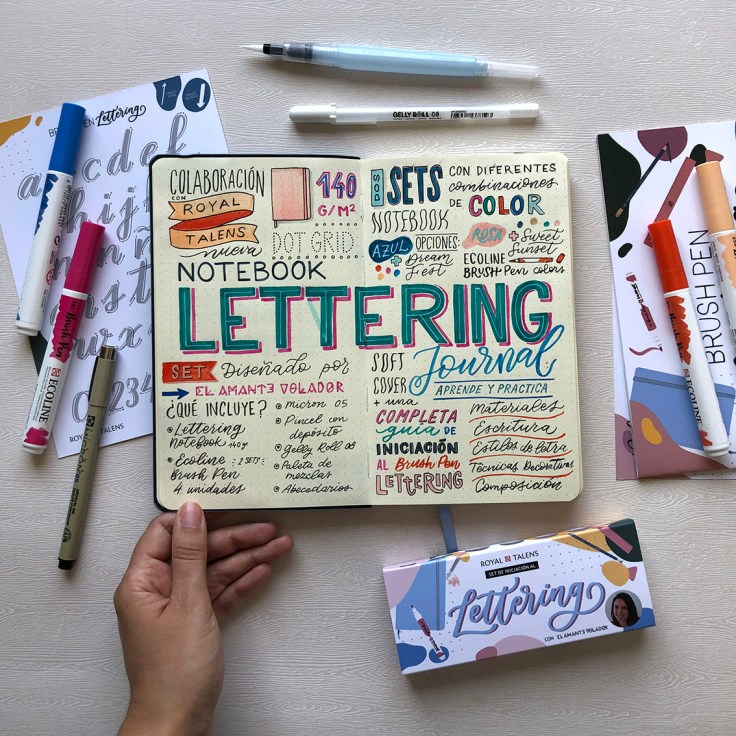 GELLY ROLL 08
BRUSH PEN Lettering
COLABORACIÓN
CON
ROYAL
TALENS
nueva
140
G/M²
DOT GRID
NOTEBOOK
DOS SETS
NOTEBOOK
AZUL
OPCIONES:
+ Dream
Fest
CON DIFERENTES
combinaciones
DE COLOR
ROSA
+ Sweet
Sunset
ECOLINE
BRUSH Pen colors
LETTERING
Journal
SET Diseñado por
EL AMANT3 VOLADOR
¿QUÉ INCLUYE?
Lettering
Notebook 140gr
Ecoline 2 SETS
Brush Pen
4 unidades
micron 05
Pincel con
depósito
Gelly Roll 08
Paleta de
mezclas
Abecedarios
SOFT
COVER
+ una
COMPLETA
guía DE
INICIACIÓN
AL Brush Pen
LETTERING
APRENDE Y PRACTICA
Materiales
Escritura
Estilos de letra
Técnicas Decorativas
Composición
a b c d e f
ROYAL TALENS
Brush Pen
ECOLINE
BRUSH PEN
ECOLINE
ROYAL TALENS
SET DE INICIACIÓN AL
Lettering
CON EL AMANT3 VOLADOR